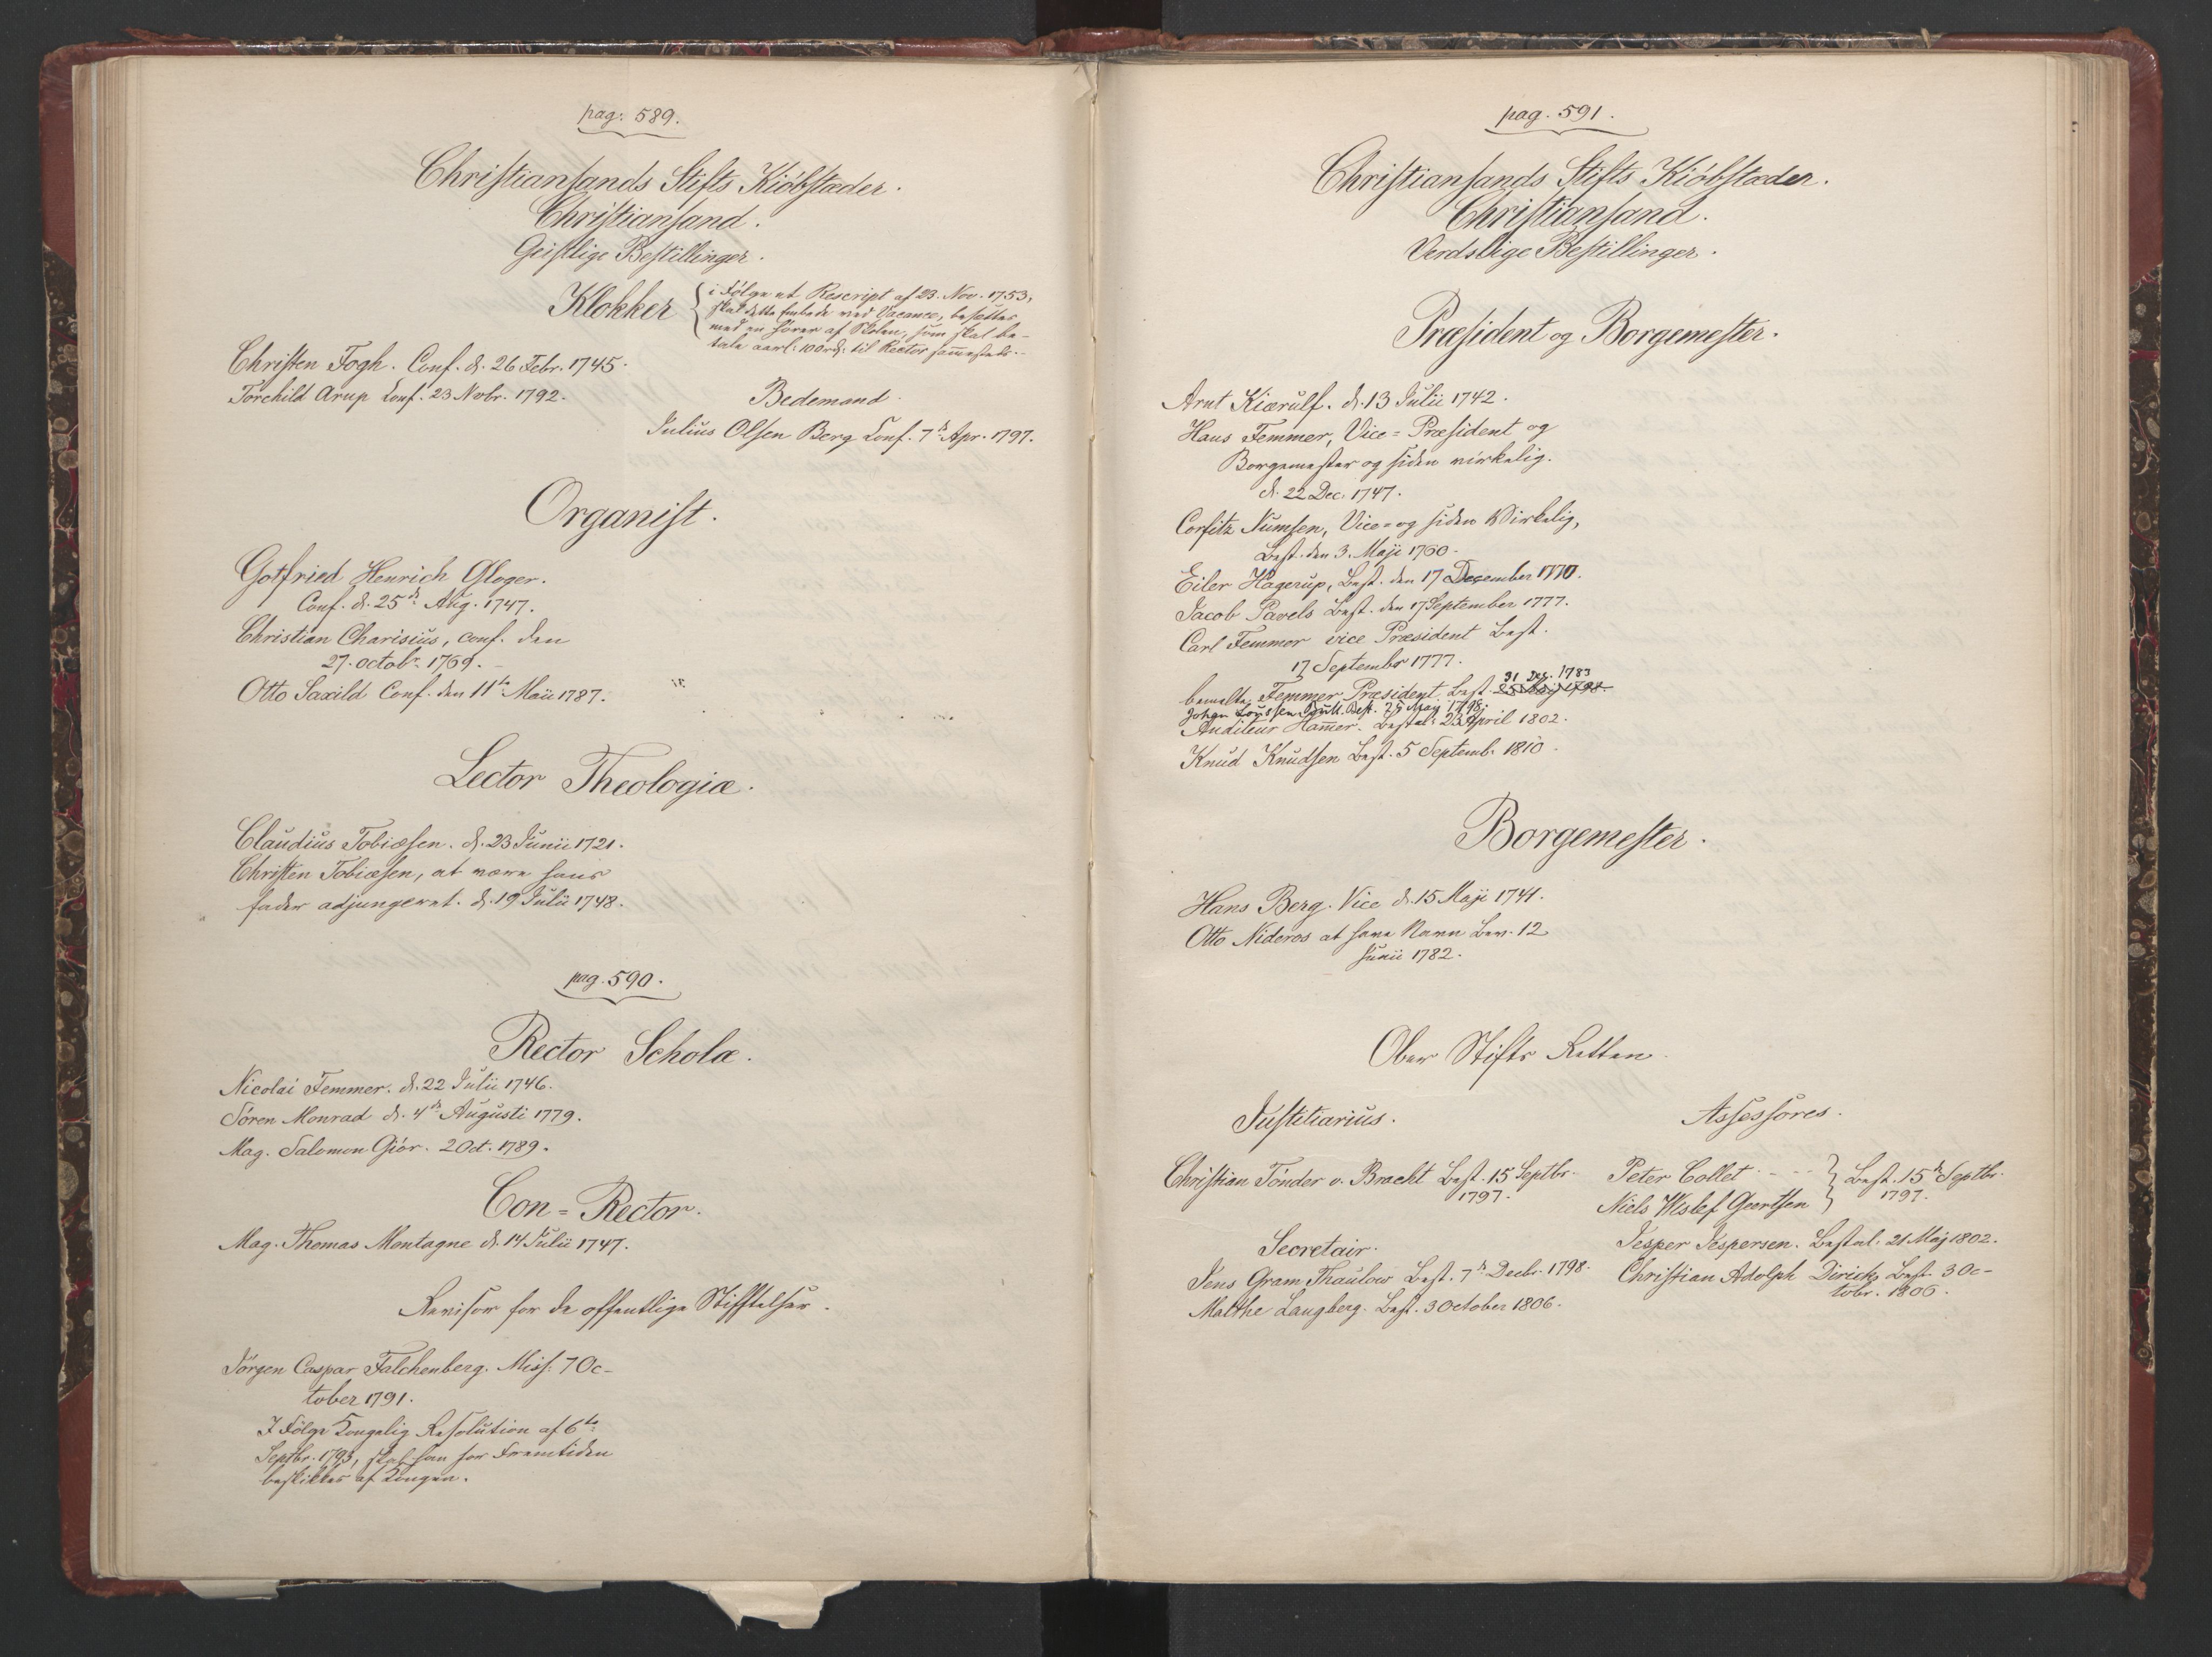 pag. 589.
Christiansands Stifts Kiøbstæder.
Christiansand.
Geistlige Bestillinger.
Klokker
i Følge et Rescript af 23. Nov. 1753,
skal dette Embede ved Vacance, besættes
med en Hører af Skolen, som skal be-
tale aarl: 100 rd: til Rector sammesteds.
Christen Fogh. Conf. d. 26 Febr. 1745.
Torchild Arup Conf. 23 Novbr. 1792.
Bedemand.
Julius Olsen Berg Conf. 7de Apr. 1797.
Organist.
Gotfried Henrich Gloger.
Conf. d. 25de Aug. 1747.
Christian Charisius, conf. den
27. octobr. 1769.
Otto Saxild Conf. den 11te Maii 1787.
Lector Theologiæ.
Claudius Tobiæsen. d. 23 Junii 1721.
Christen Tobiæsen, at være hans
fader adjungeret. d. 19 Julii 1748.
pag. 590.
Rector Scholæ.
Nicolai Femmer. d. 22 Julii 1746.
Søren Monrad d. 4de Augusti 1779.
Mag. Salomon Giør. 2 Oct. 1789.
Con=Rector.
Mag. Thomas Montagne d. 14 Julii 1747.
Revisor for de offentlige Stifftelser.
Jørgen Caspar Falchenberg. Miss: 7 Oc-
tober 1791.
I Følge Kongelig Resolution af 6te
Septbr. 1793, skal han for Fremtiden
beskikkes af Kongen.
pag. 591.
Christiansands Stifts Kiøbstæder.
Christiansand.
Verdslige Bestillinger.
Præsident og Borgemester.
Arnt Kiærulf. d. 13 Julii 1742.
Hans Femmer, Vice=Præsident og
Borgemester og siden virkelig.
d. 22 Dec. 1747.
Corfitz Numsen, Vice= og siden Wirkelig,
Best. den 3. Maji 1760.
Eiler Hagerup, Best. den 17 December 1770.
Jacob Pavels Best. den 17 September 1777.
Carl Femmer vice Præsident Best.
17 Septembr 1777.
31 Dez. 1783
bemelte Femmer Præsident. Best. 25 May 1798.
Johan Best. 25 May 1798.
Auditeur Hammer. Bestal: 23 April 1802.
Knud Knudsen Best. 5 Septemb. 1810.
Borgemester.
Hans Berg. Vice d. 15 Maji 1741.
Otto Nideros at have Navn Bev. 12
Junii 1782.
Ober Stifts Retten.
Justitiarius.
Christian Tønder v. Bracht Best. 15 Septbr.
1797.
Secretair.
Jens Gram Thaulow Best. 7de Decbr. 1798.
Malthe Langberg. Best. 3 October 1806.
Assessores.
Peter Collet
Niels Wisløf Geertsen
Best. 15de Septbr.
1797.
Jesper Jespersen. Bestal: 21 Maj 1802.
Christian Adolph Diricks Best. 3 Oc-
tobr. 1806.